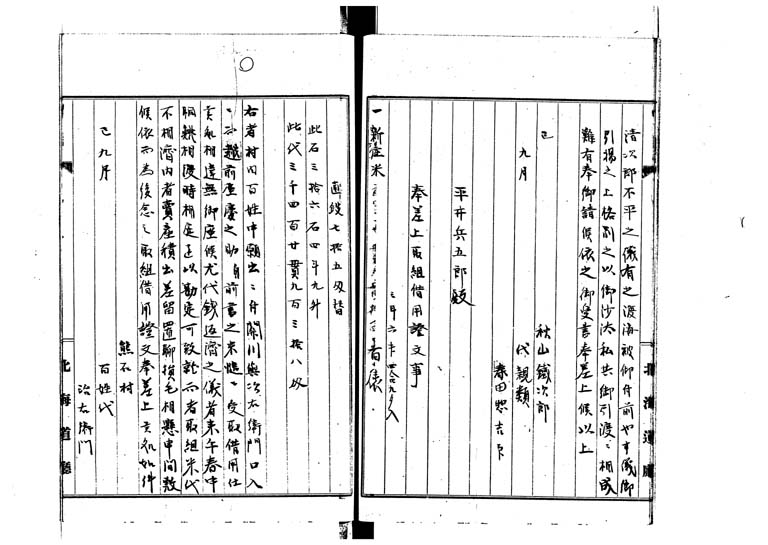 清次郎不平之儀有之渡海被仰付前也事儀御
引揚之上格別之以御沙汰私共御引渡ニ相成
難有奉御請候依之御受書奉差上候以上
巳
九月
秋山鐵次郎
代親類
桑田惣吉
平井兵五郎殿
奉差上取組借用證文事
一新庄米
三斗六升 入
此石三拾六石四斗九升
此代三千四百廿貫九百三拾八文
右者村内百姓中願出ニ付関川與次右衛門口入
ニ而越前屋慶之助自前書之米慥ニ受取借用仕
実処相違無御座候尤代銭返済之儀者来午春中
鯡漁相場時相庭を以勘定可致若而者取組米代
不相済内者賣産積出差留置聊損毛相懸申間敷
候依而為後念之取組借用證文奉差上実処如件
巳九月
熊石村
百姓代
治右衛門
北海道廳
北海道廳